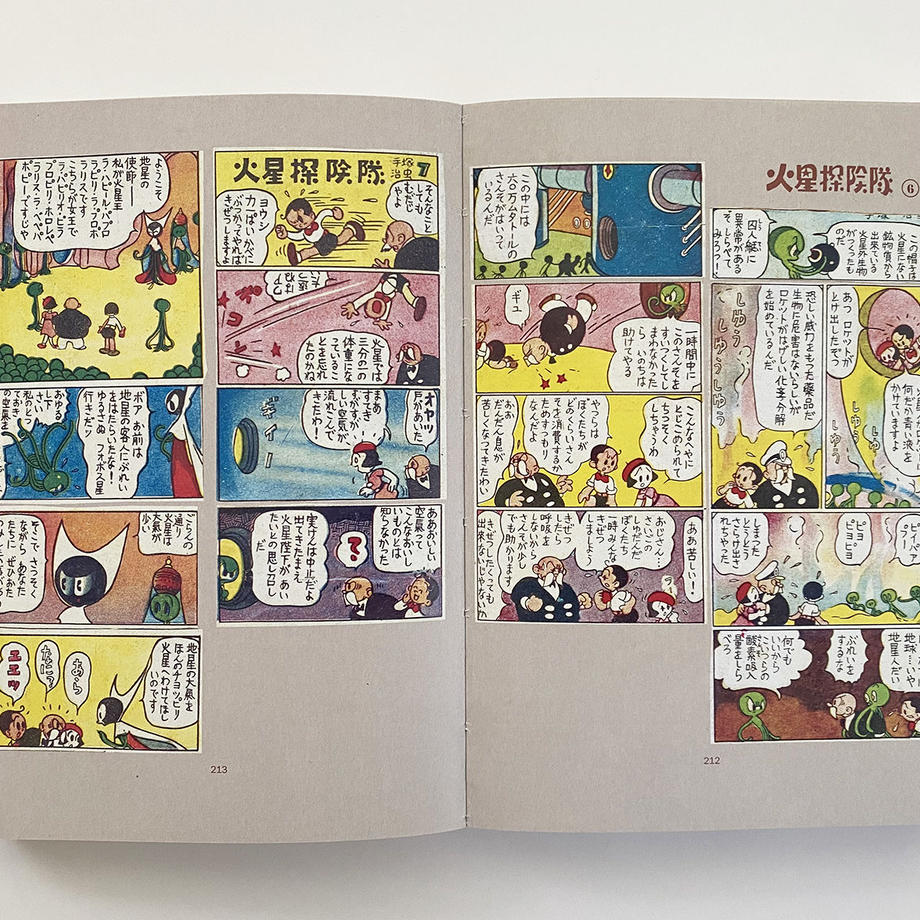 火星探険隊 ⑥
火星にない
鉱物質から
出来ている
火星外生物
がつかったも
のだ
囚人艇に
異常がある
みろっ!
あっ ロケットが
とけ出したぞっ
何だか青い液を
かけていますよ
しゅう
しゅう
恐しい威力をもった薬品だ
生物に危害はないらしいが
ロケットがはげしい化学分解
を始めているんだ
しゅう
しゅう
しゅうしゅう
ピヨ
ピヨ
ピヨピヨ
しまった
とうとう
さらけ出さ
地球…いや
地星人だい
ぶれいを
するな
何でも
いいから
こいつらの
酸素吸入
量をしら
べろ
この中には
六〇万ムタトールの
さんそがはいって
いるんだ
一時間中に
このさんそを
すってして
まわなかった
ら いのちは
助けてやる
ギュ
こんなへやに
とじこめられて
しちゃうわ
やつらは
ぼくたちが
どのくらいさん
そを消費するか
ためすつもり
なんだ
だんだん息が
苦しくなってきたわい
ああ苦しい!
おじさん…
さいごの
しゅだんだ
ぼくたち
一時みんな
きぜつ
しよう
きぜつ
したら
呼吸を
しないから
さんそが少し
でも助かります
きぜつしたくっても
出来ないじゃないか
212
火星探険隊 手塚治虫 7
そんなこと
むだじゃよ
ヨウシ
力一ぱいかべに
ぶつかってやれば
きぜつしますよ
火星では
三分の一の
体重になっ
ていること
を忘れ
たのかね
オヤッ
戸があいた
まあ
すてき
すがすが
しい空気が
流れこん
できたわ!
ギイー
ああおいしい
空気って
こんなにおい
しいものとは
知らなかった
?
実けんは中止だよ
出てきたまえ
火星陛下があい
たいとの思し召し
だ
213
ようこそ
地星の
使節——
私が火星王
ラ・ハピール・パプロ
ラピリ・ラ・プロポ
ラリスです
こちらが女王で
ラ・ハピリオ・ピラ
プロピリ・ホロレペ
ラリス・ラ・ペペパ
ポピーですじゃ
ボア お前は
地星の客人にぶれい
をはたらいたな!
ゆるさぬ フォボス星
行きだッ
おゆる
し下
さい
ごらんの
通り
火星は
大気が
少い
そこで さっそく
ながら あなた
たちに ぜひあた
地星の大気を
ほんのチョッピリ
火星へわけてほし
いのです
あら
なに?
エエッ